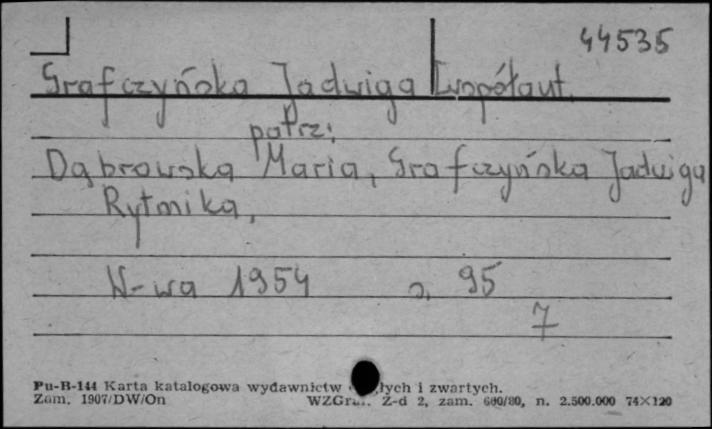 44535
Grafczyńska Jadwiga współaut.
patrz:
Dąbrowska Maria, Grafczyńska Jadwiga
Rytmika,
W-wa 1954 s. 95
7
Pu-B-144 Karta katalogowa wydawnictw i zwartych.
Zam. 1907/DW/On WZGraf. Z-d 2, zam. 600/80, n. 2.500.000 74×120